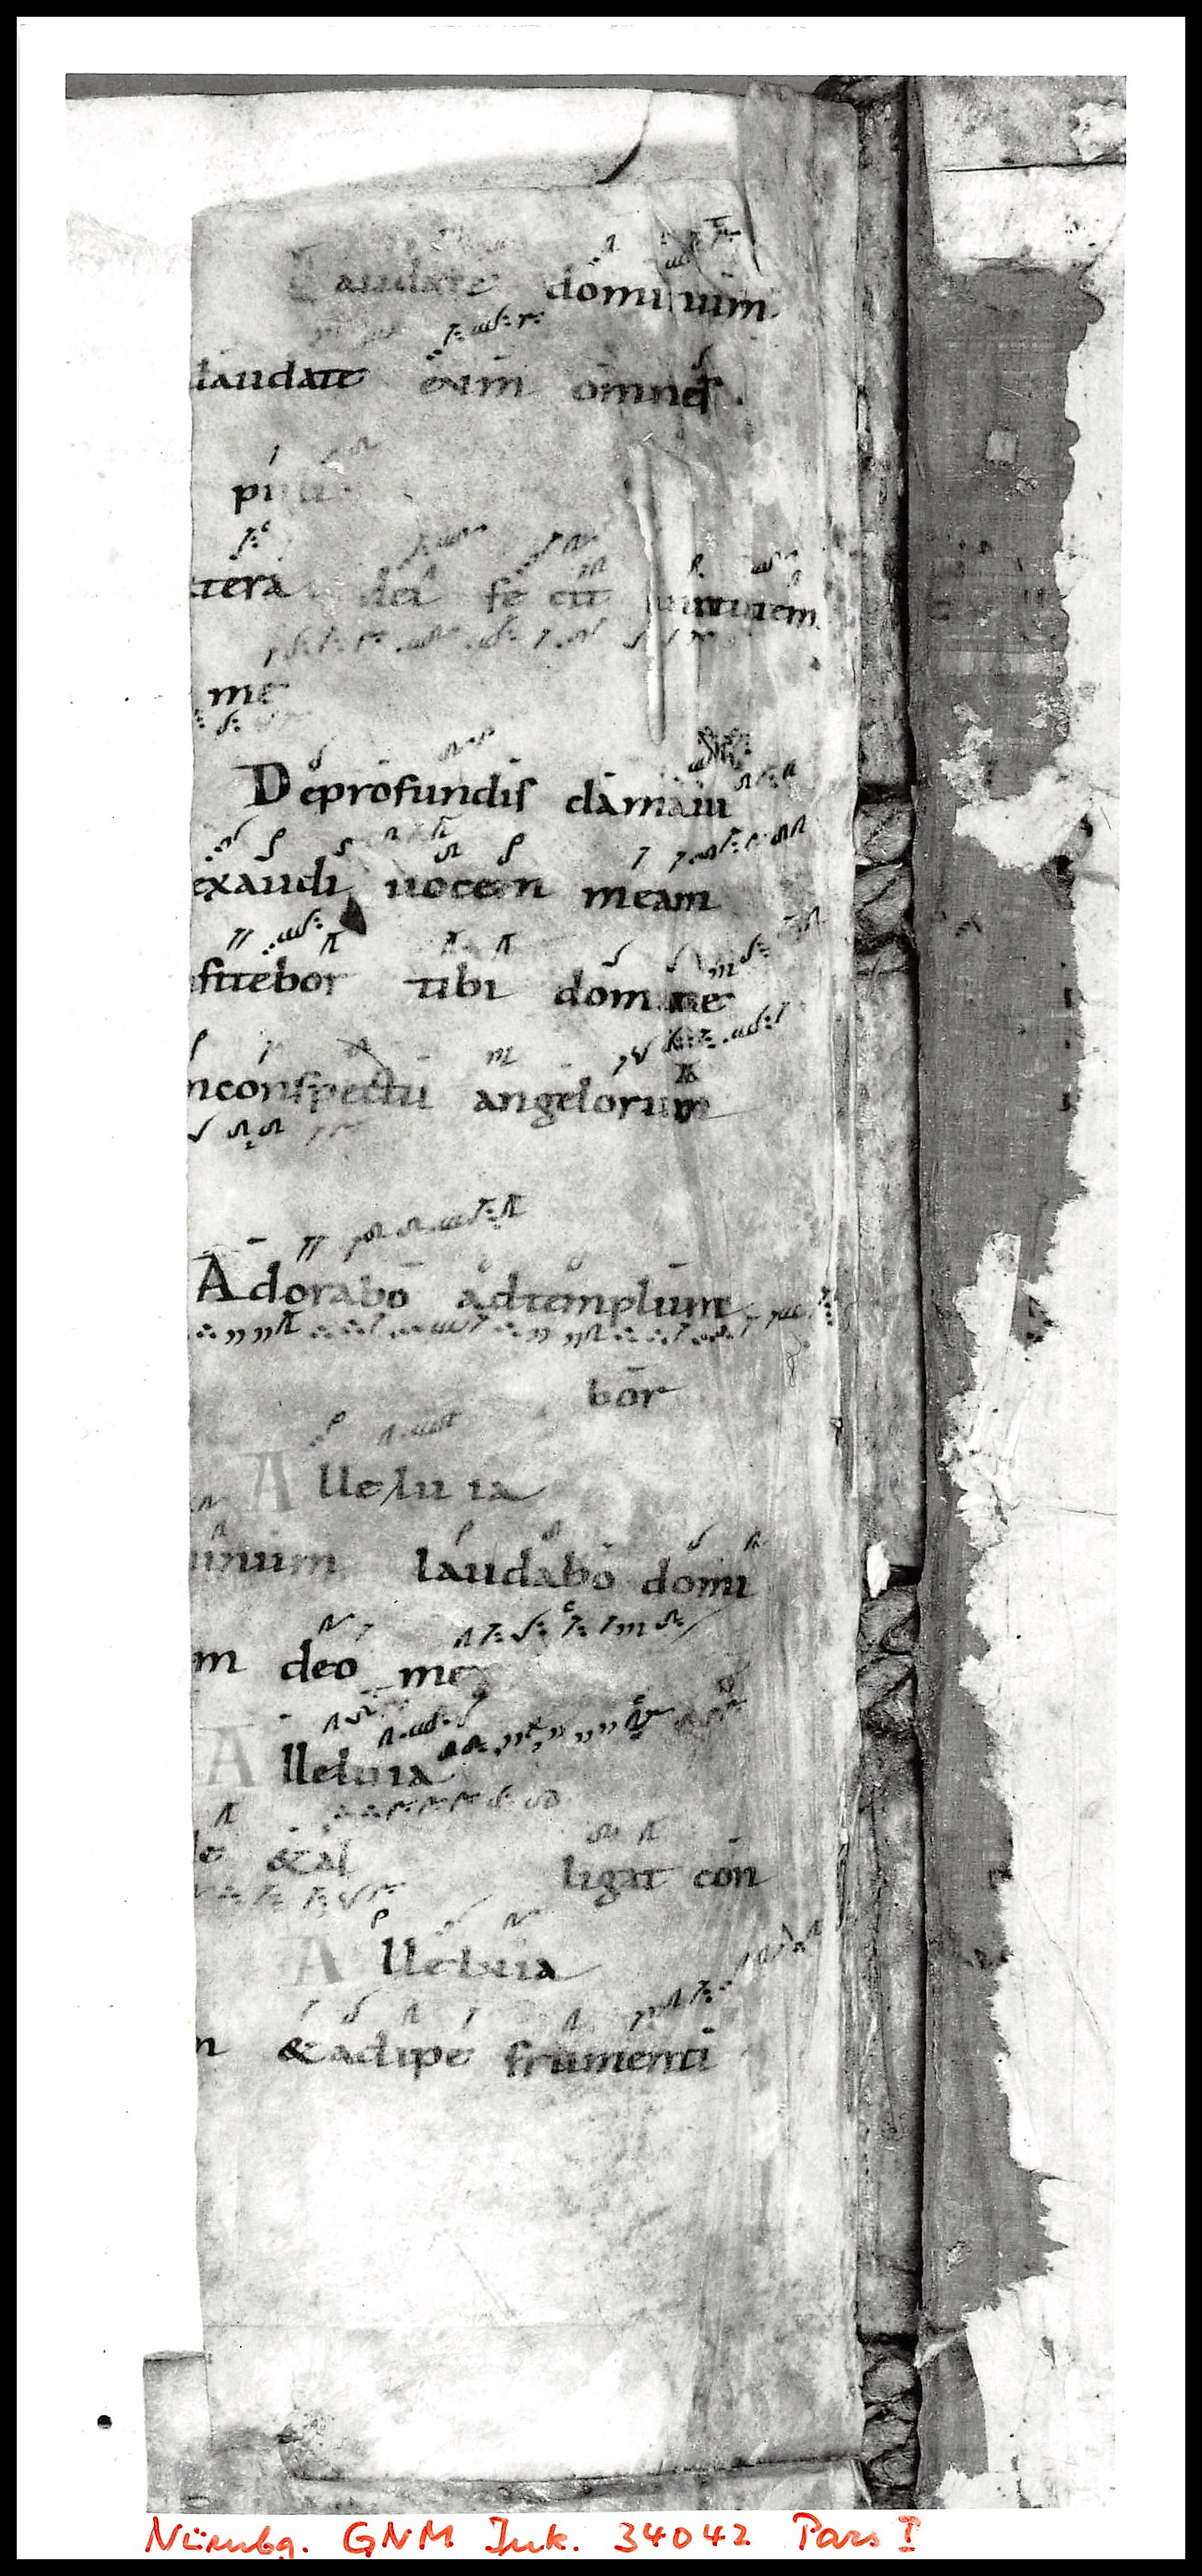 Laudate dominum
laudate eum omnes
puli
tera dei fe cit uirtutem
me
Deprofundis clamaui
exaudi uocem meam
fitebor tibi domine
nconspectu angelorum
Adorabo adtemplum
bor
Alleluia
minum laudabo domi
m deo meo
Alleluia
le & al ligat con
Alleluia
m & adipe frumenti
Nürnbg. GNM Ink. 34042 Pars I